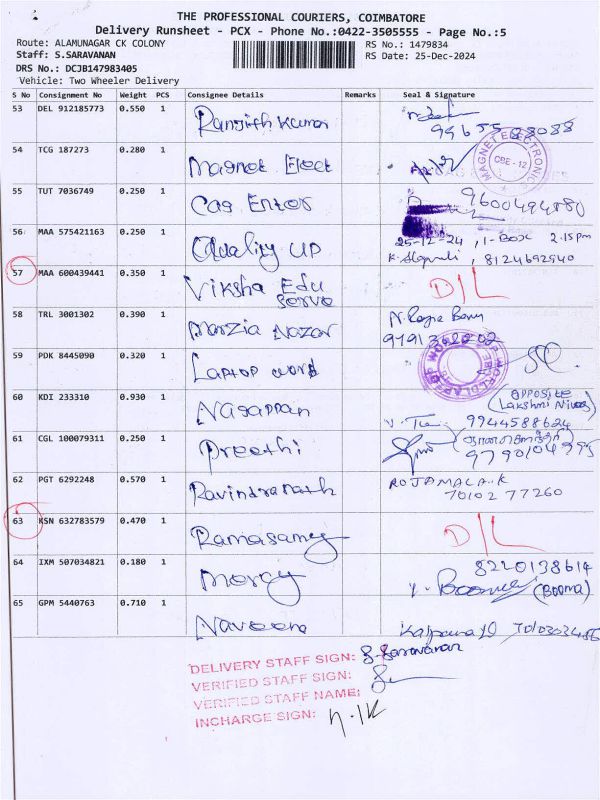 THE PROFESSIONAL COURIERS, COIMBATORE
Delivery Runsheet - PCX - Phone No.:0422-3505555 - Page No.:5
Route: ALAMUNAGAR CK COLONY RS No.: 1479834
Staff: S.SARAVANAN RS Date: 25-Dec-2024
DRS No.: DCJB147983405
Vehicle: Two Wheeler Delivery
S No Consignment No Weight PCS Consignee Details Remarks Seal & Signature
53 DEL 912185773 0.550 1 Ranjith Kumar
54 TCG 187273 0.280 1 Magnet Elect
MAGNET ELECTRONICS
CBE-12
55 TUT 7036749 0.250 1 9600494880
56 MAA 575421163 0.250 1 Quality UP 25-12-24, 1-Box 2.15pm
8124692540
57 MAA 600439441 0.350 1 Viksha Edu D/L
Serve
58 TRL 3001302 0.390 1 Marzia Nazar
59 PDK 8445090 0.320 1 Laptop world
60 KDI 233310 0.930 1 Nagappan (Opposite
Lakshmi Nivas)
9944588624
61 CGL 100079311 0.250 1 Preethi
9790104395
62 PGT 6292248 0.570 1 Ravindranath ROJAMALA.K
70102 77260
63 KSN 632783579 0.470 1 Ramasamy D/L
64 IXM 507034821 0.180 1 Mercy 8220138614
(BOOMA)
65 GPM 5440763 0.710 1 Naveena Kalpana
DELIVERY STAFF SIGN: S. Saravanan
VERIFIED STAFF SIGN:
VERIFIED STAFF NAME:
INCHARGE SIGN: